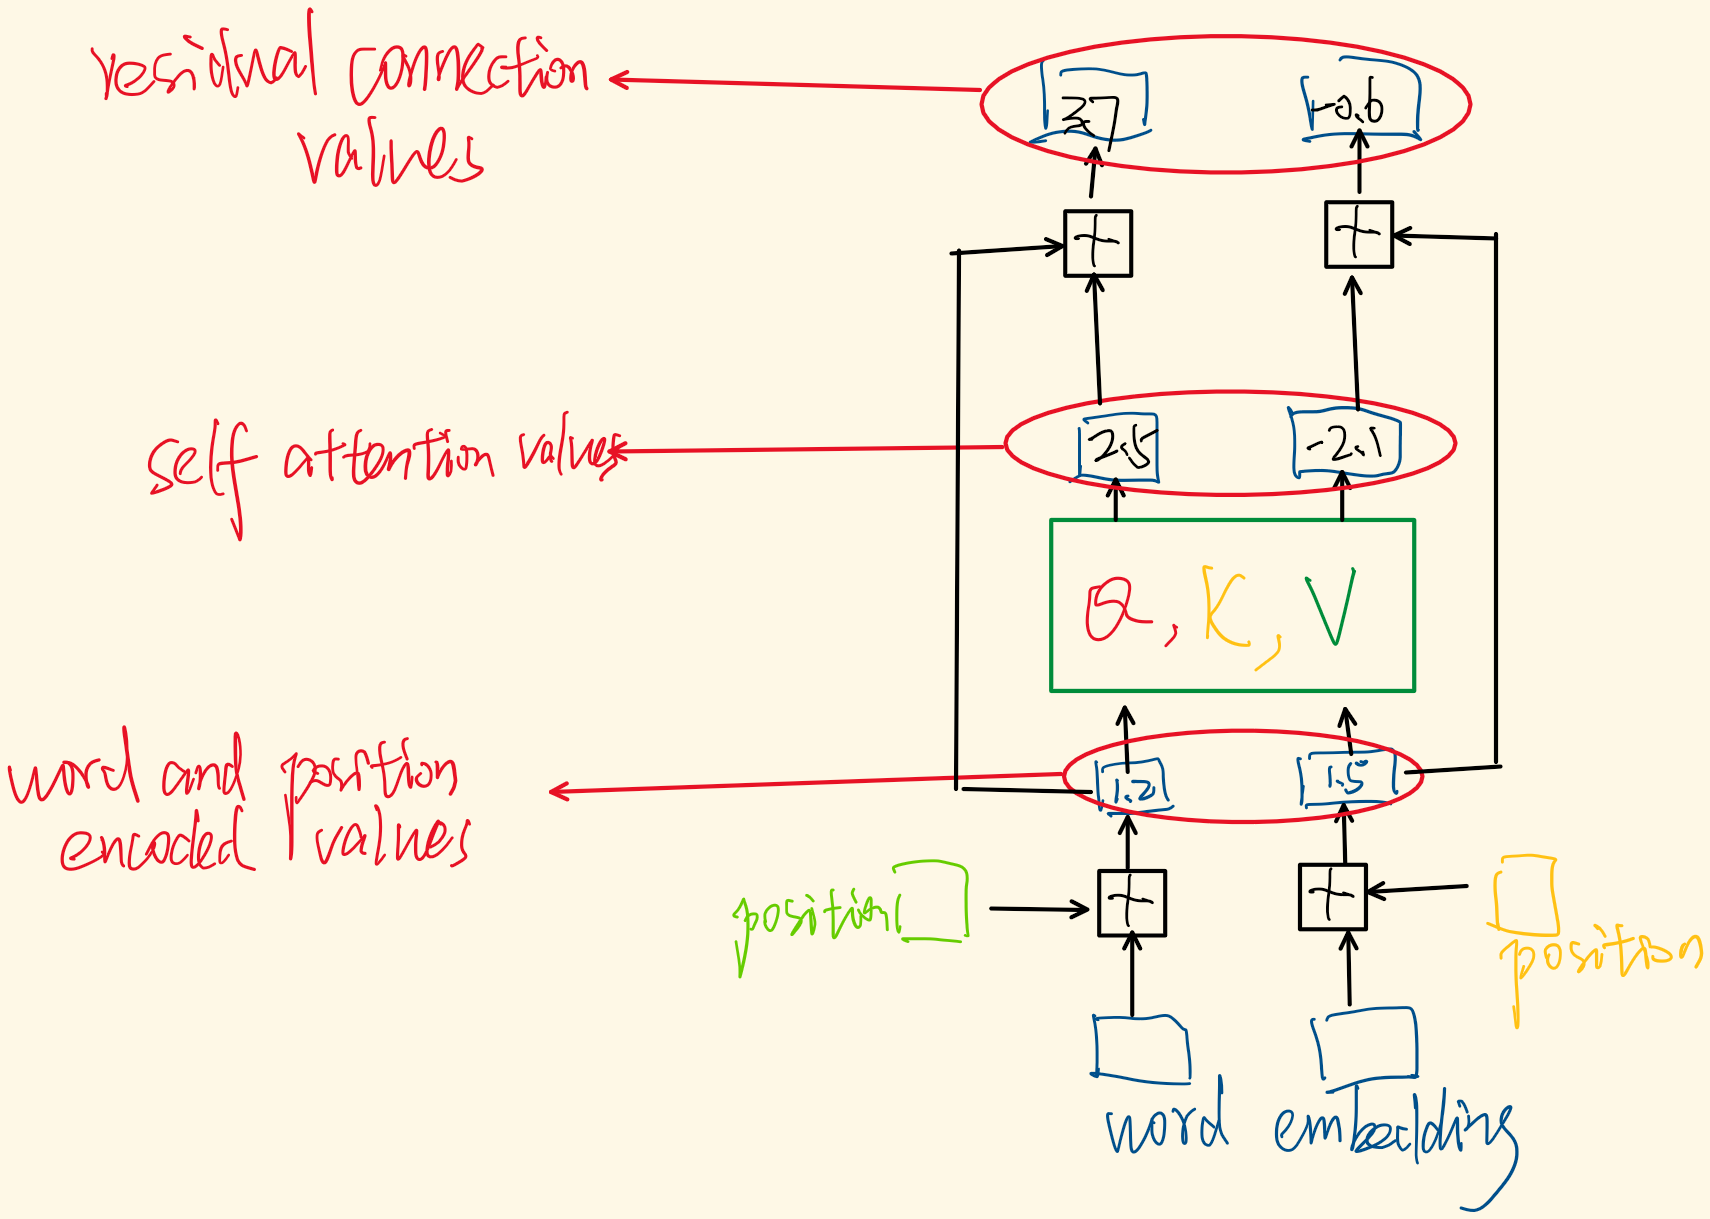 residual connection
values
3.7
-0.6
+
+
self attention values
2.5
-2.1
Q, K, V
word and position
encoded values
1.2
1.5
position
+
+
position
word embedding